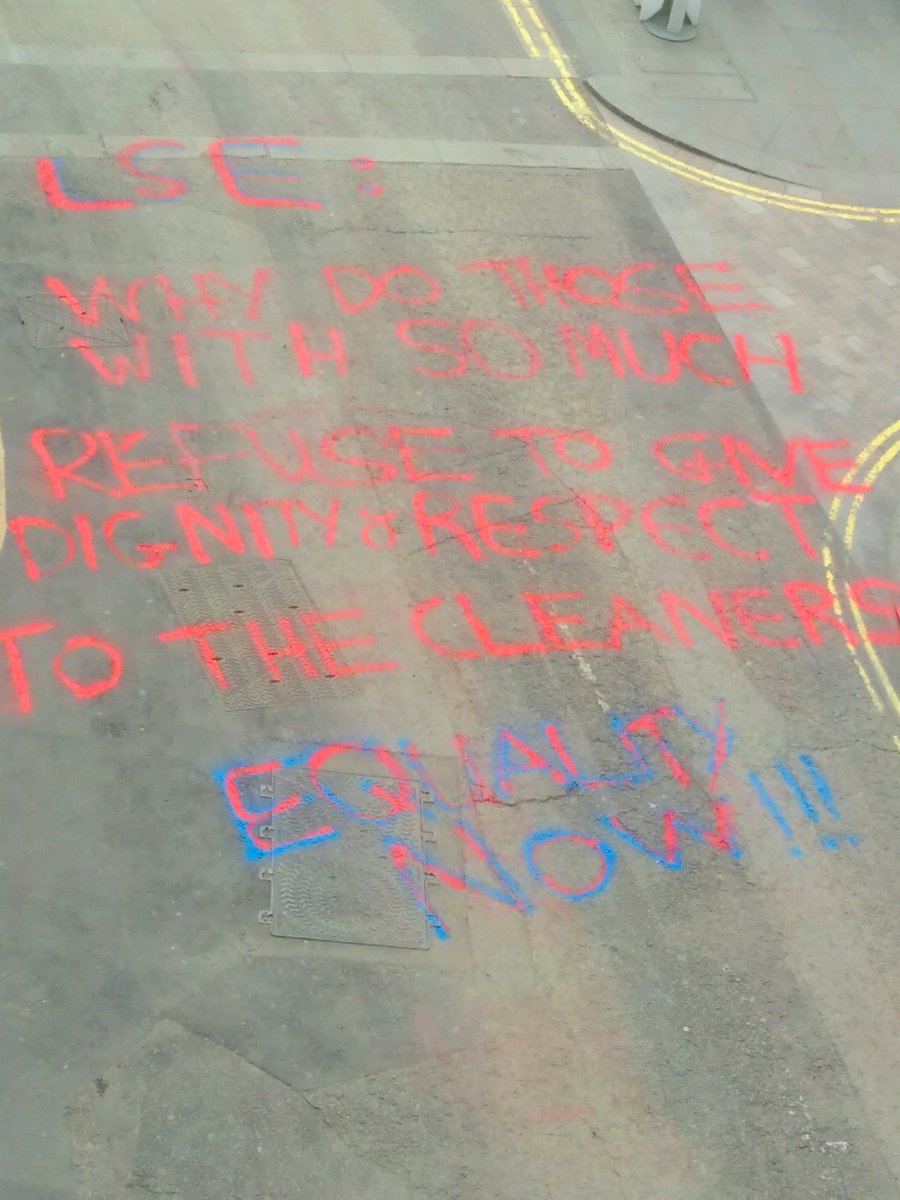 LSE:
WHY DO THOSE
WITH SO MUCH
REFUSE TO GIVE
DIGNITY & RESPECT
TO THE CLEANERS
EQUALITY
NOW!!!